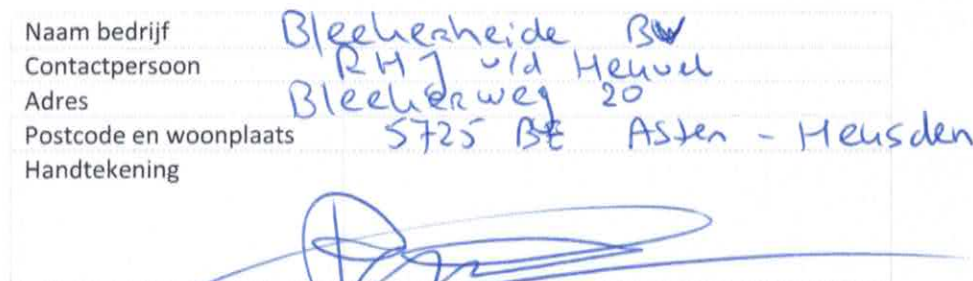 Naam bedrijf Bleekerheide BV
Contactpersoon RHJ v/d Heuvel
Adres Bleekerweg 20
Postcode en woonplaats 5725 BE Asten - Heusden
Handtekening